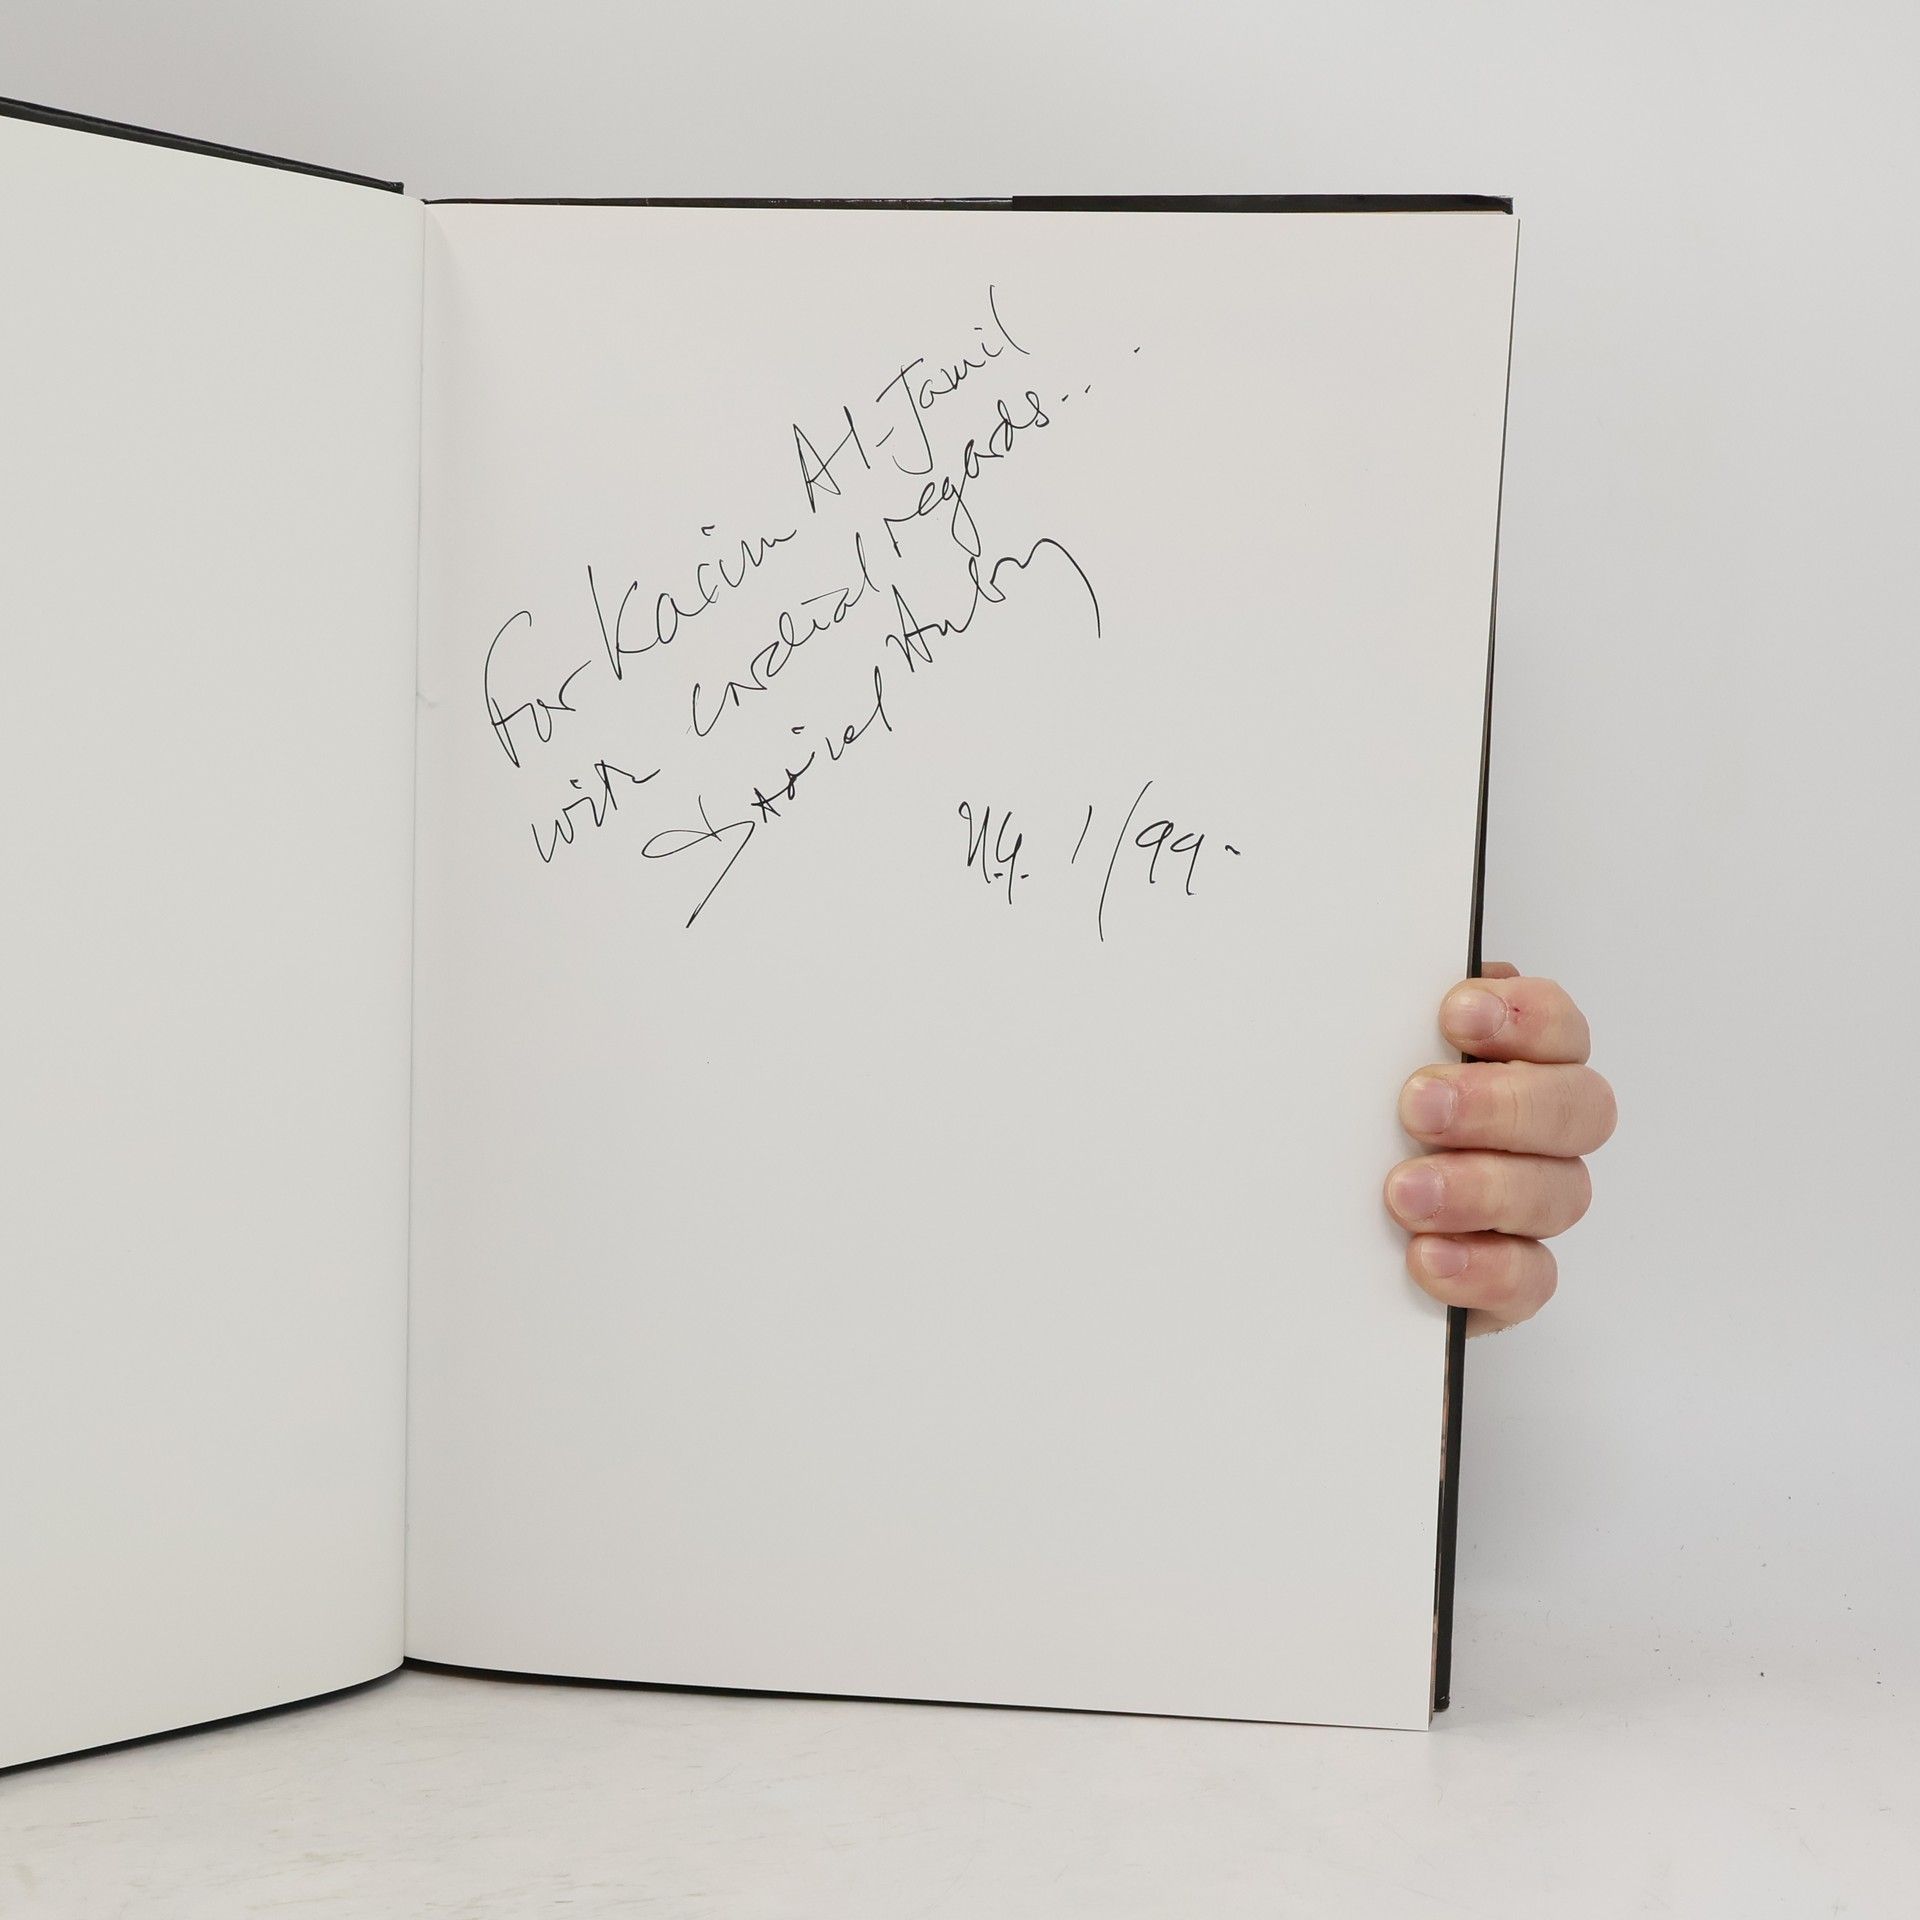 For Kacim Al-Jamil
with cordial regards...
Daniel Aubry
N.Y. 1/99-